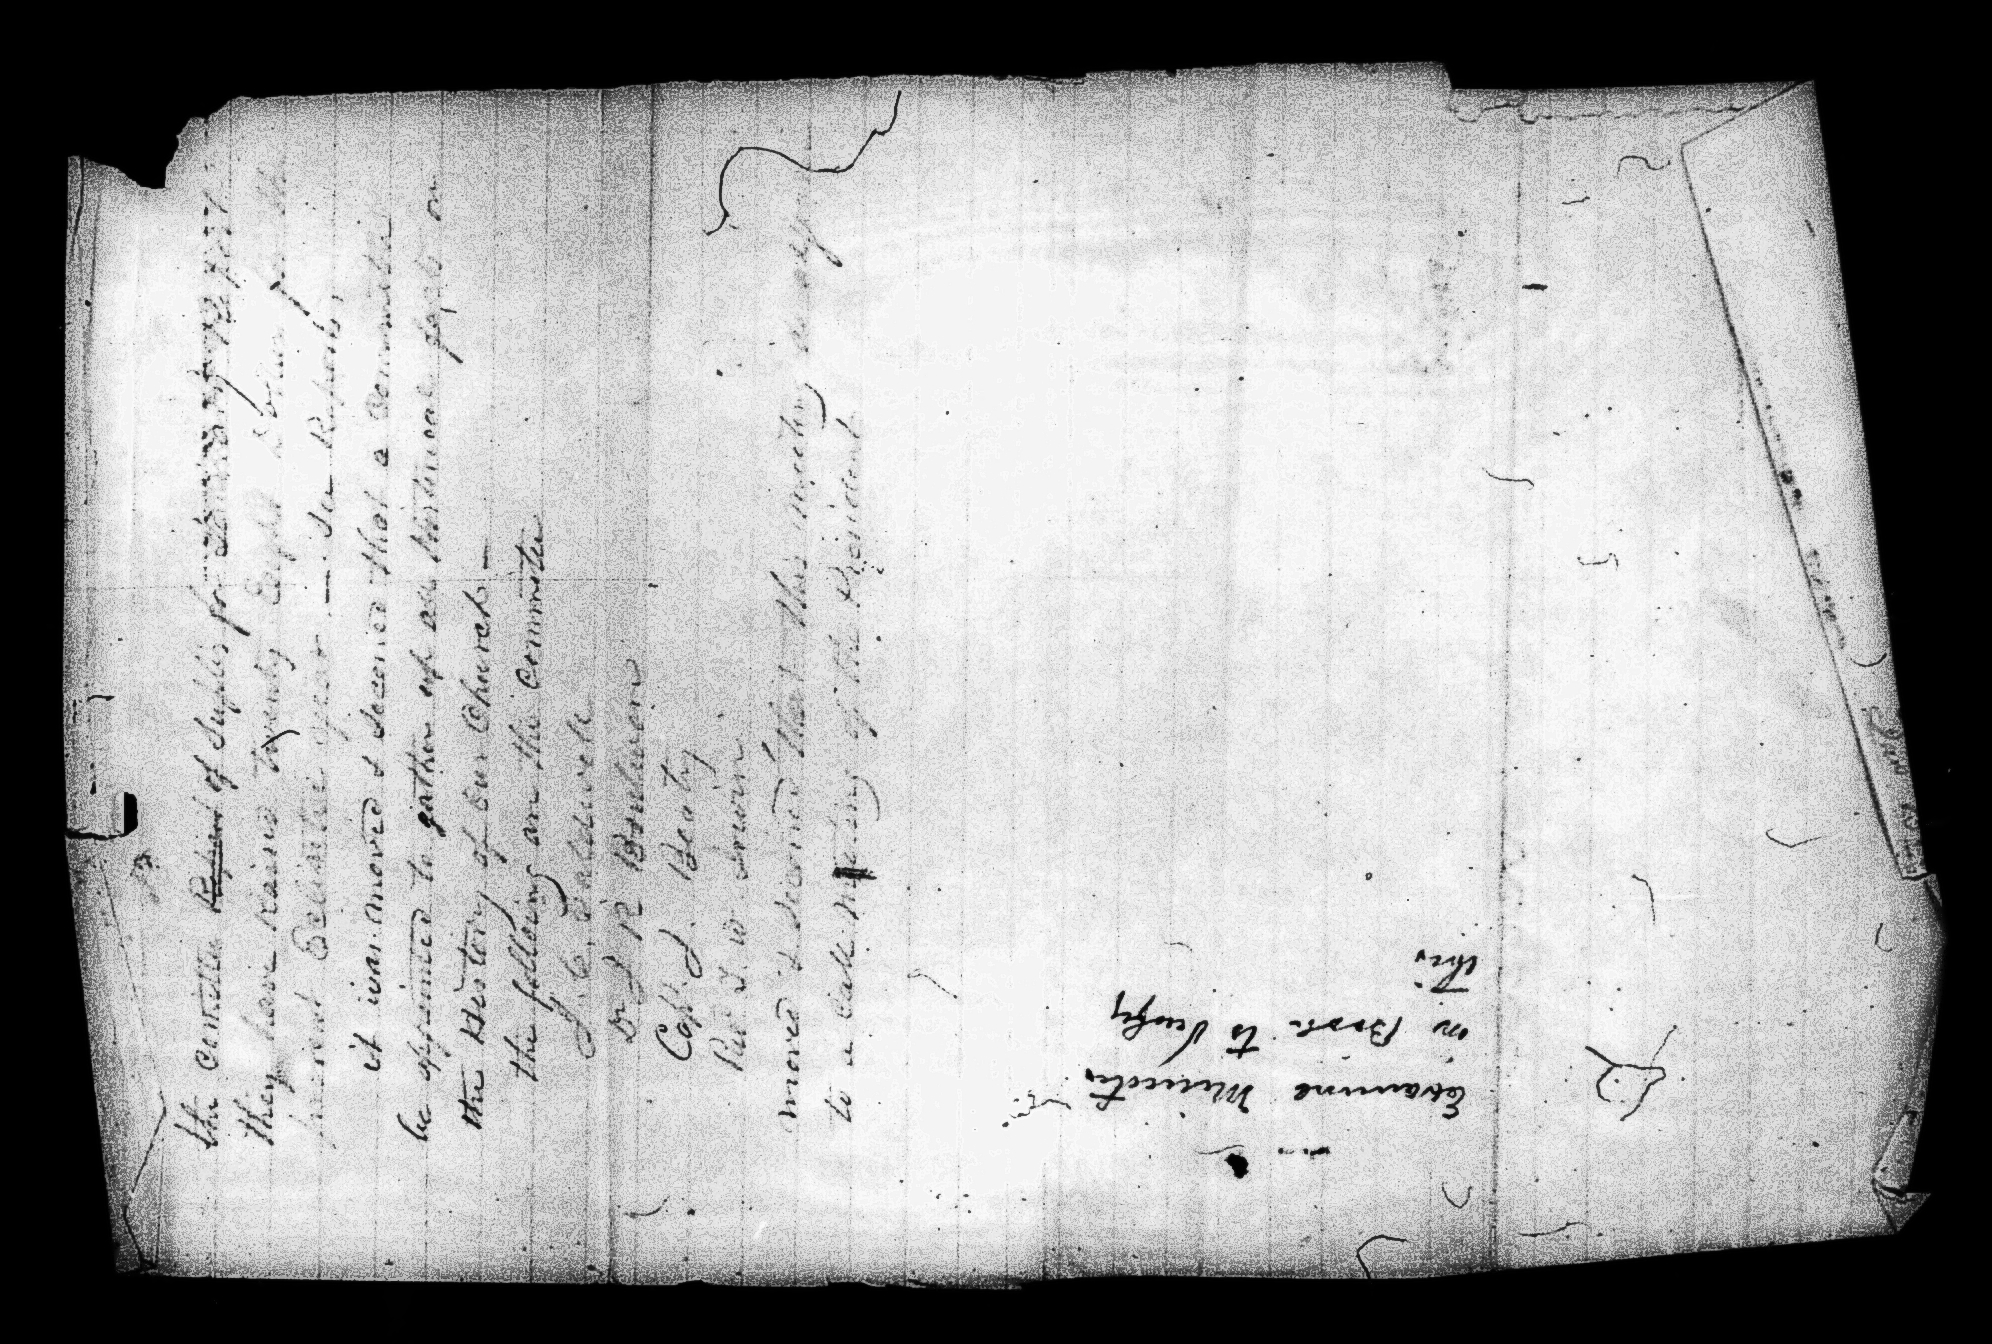 the Comittee Report of Supply for
they have raised Twenty Eight Dollars for the
present Eclisiastic year — See Report,
it was moved & Seconed that a committee
be appointed to gather up all historical facts on
the History of our Church —
the following are the Committee
J. C. Caldwell
D J R
Capt. J. Beaty
Rev J. W. Erwin
moved & seconed that this meeting
to a call meeting of the President
Examine Minutes
in Book to Verify
this